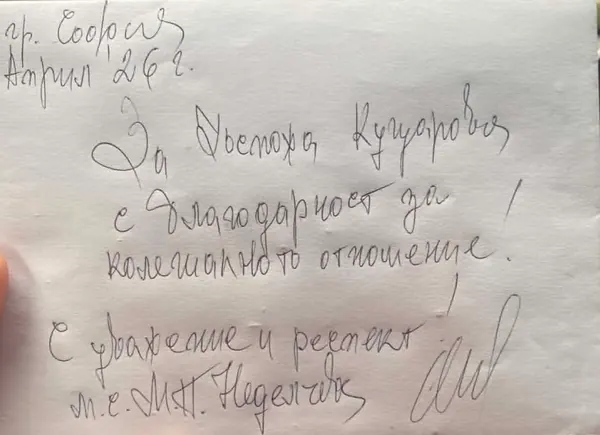 гр. София
Април '26 г.
За Госпожа Кушарова
с благодарност за
колегиалното отношение!
С уважение и респект!
м.с. М.Н. Неделчев